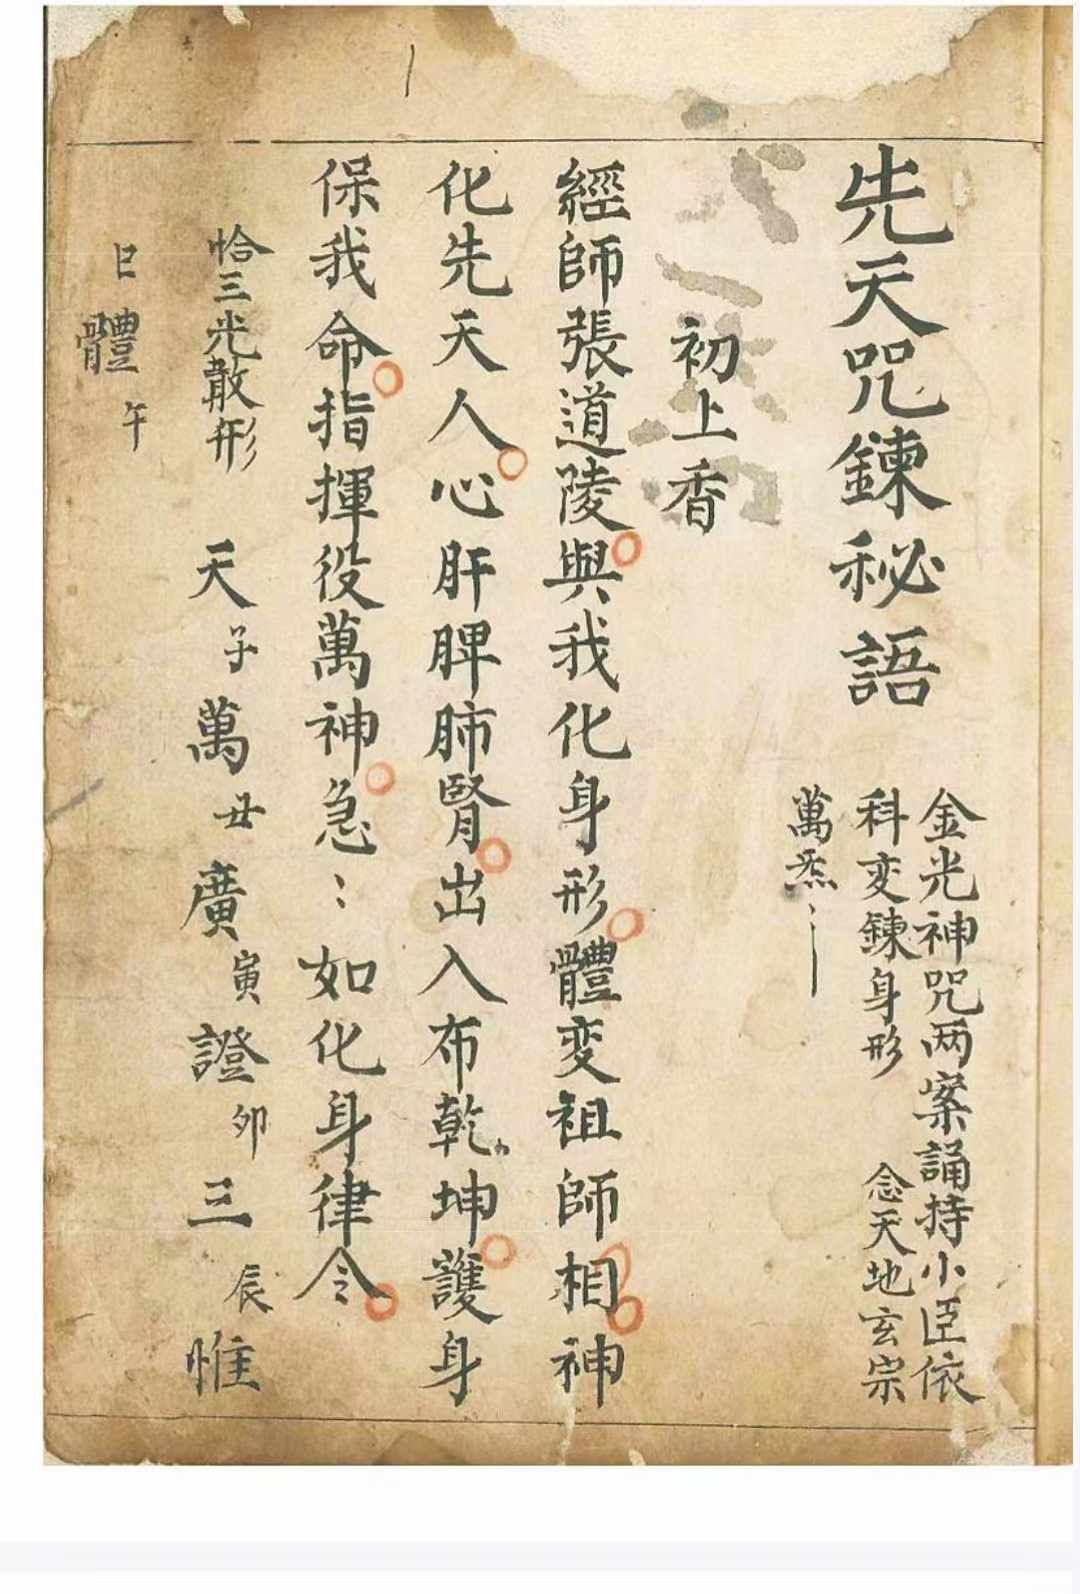 先天咒鍊秘語
金光神咒两案誦持小臣依
科变鍊身形 念天地玄宗
萬炁
初上香
經師張道陵與我化身形體变祖師相神
化先天人心肝脾肺腎出入布乾坤護身
保我命指揮役萬神急〻如化身律令
恰三光散形 天子萬丑廣寅證卯三辰惟
巳體午